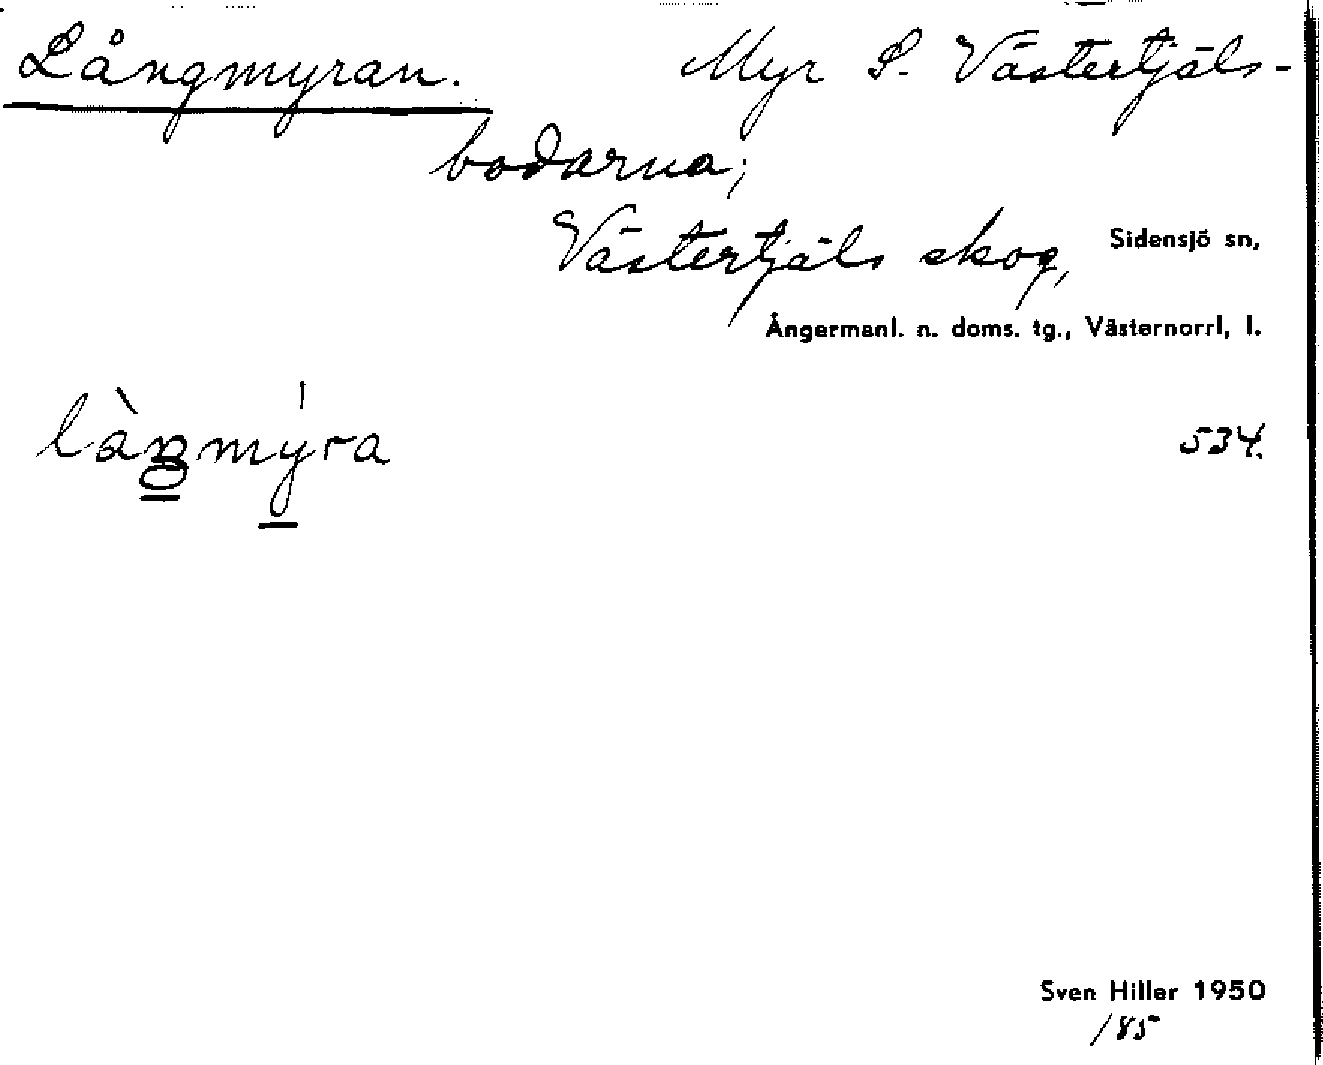 Långmyran. Myr S. Västertjäls-
bodarna;
Västertjäls skog, Sidensjö sn,
Ångermanl. n. doms. tg., Västernorrl, l.
534.
Sven Hiller 1950
/85